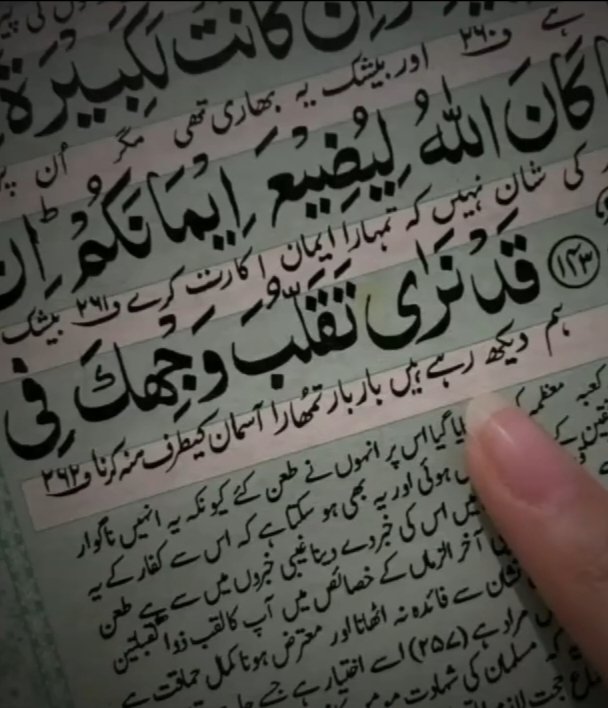 وَاِنْ كَانَتْ لَكَبِيْرَةً
ہے ف۲۶۰ اور بیشک یہ بھاری تھی مگر اُن پر
كَانَ اللهُ لِيُضِيْعَ اِيْمَانَكُمْ ؕ اِنَّ
کی شان نہیں کہ تمہارا ایمان اکارت کرے ف۲۶۱ بیشک
۱۴۳ قَدْ نَرٰى تَقَلُّبَ وَجْهِكَ فِى
ہم دیکھ رہے ہیں بار بار تمھارا آسمان کیطرف منہ کرنا ف۲۶۲
کعبہ معظمہ گیا اس پر انہوں نے طعن کئے کیونکہ یہ انہیں ناگوار
ہوئی اور یہ بھی ہو سکتا ہے کہ اس سے کفار کے یہ
میں اس کی خبر دے دینا غیبی خبروں میں سے ہے طعن
آخر الزماں کے خصائص میں آپ کا لقب ذوا لقبلتین
نشان سے فائدہ نہ اٹھانا اور معترض ہونا کمال حماقت ہے
مراد ہے (۲۵۷) اسے اختیار ہے جسے چاہے
کہ مسلمان کی شہادت
حجت لازم